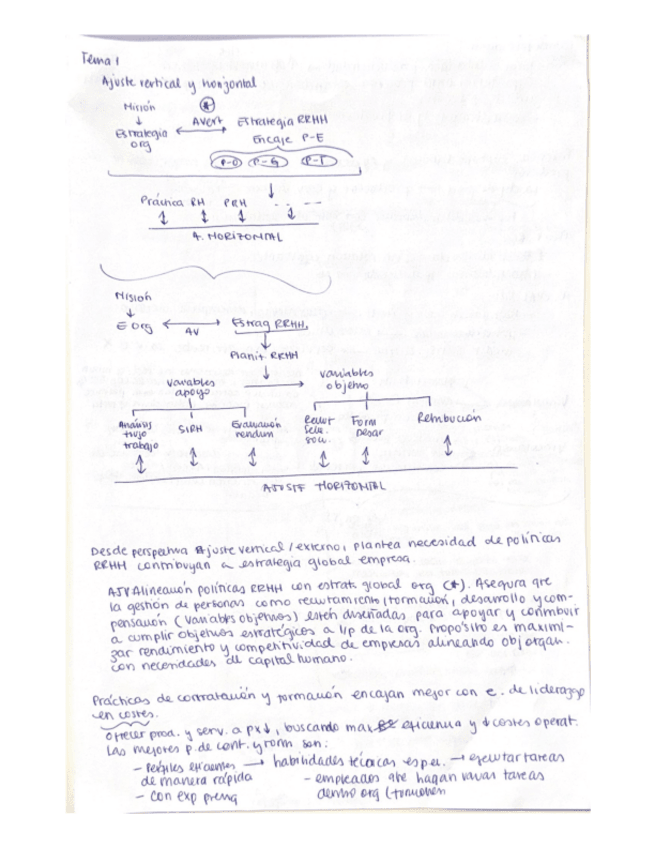 Tema 1
Ajuste vertical y horizontal
Misión
AVert
Estrategia org
Estrategia RRHH
Encaje P-E
P-O P-G P-T
Práctica RH PRH . . . ---
A. HORIZONTAL
Misión
E Org AV Estrag RRHH
Planif RRHH
variables apoyo variables objetivo
Análisis flujo trabajo SIRH Evaluación rendim Reclut Sele. Form Desar Retribución
AJUSTE HORIZONTAL
Desde perspectiva Ajuste vertical / externo, plantea necesidad de políticas
RRHH contribuyan a estrategia global empresa.
AJV Alineación políticas RRHH con estrat. global org (*). Asegura que
la gestión de personas como reclutamiento, formación, desarrollo y com-
pensación (variables objetivos) estén diseñadas para apoyar y contribuir
a cumplir objetivos estratégicos a l/p de la org. Propósito es maximi-
zar rendimiento y competitividad de empresas alineando obj organ.
con necesidades de capital humano.
Prácticas de contratación y formación encajan mejor con e. de liderazgo
en costes.
Ofrecer prod. y serv. a px↓, buscando max eficiencia y ↓costes operat.
Las mejores p. de cont. y form son:
- Perfiles eficientes → habilidades técnicas espec. → ejecutar tareas
de manera rápida - empleados que hagan varias tareas
- con exp previa dentro org